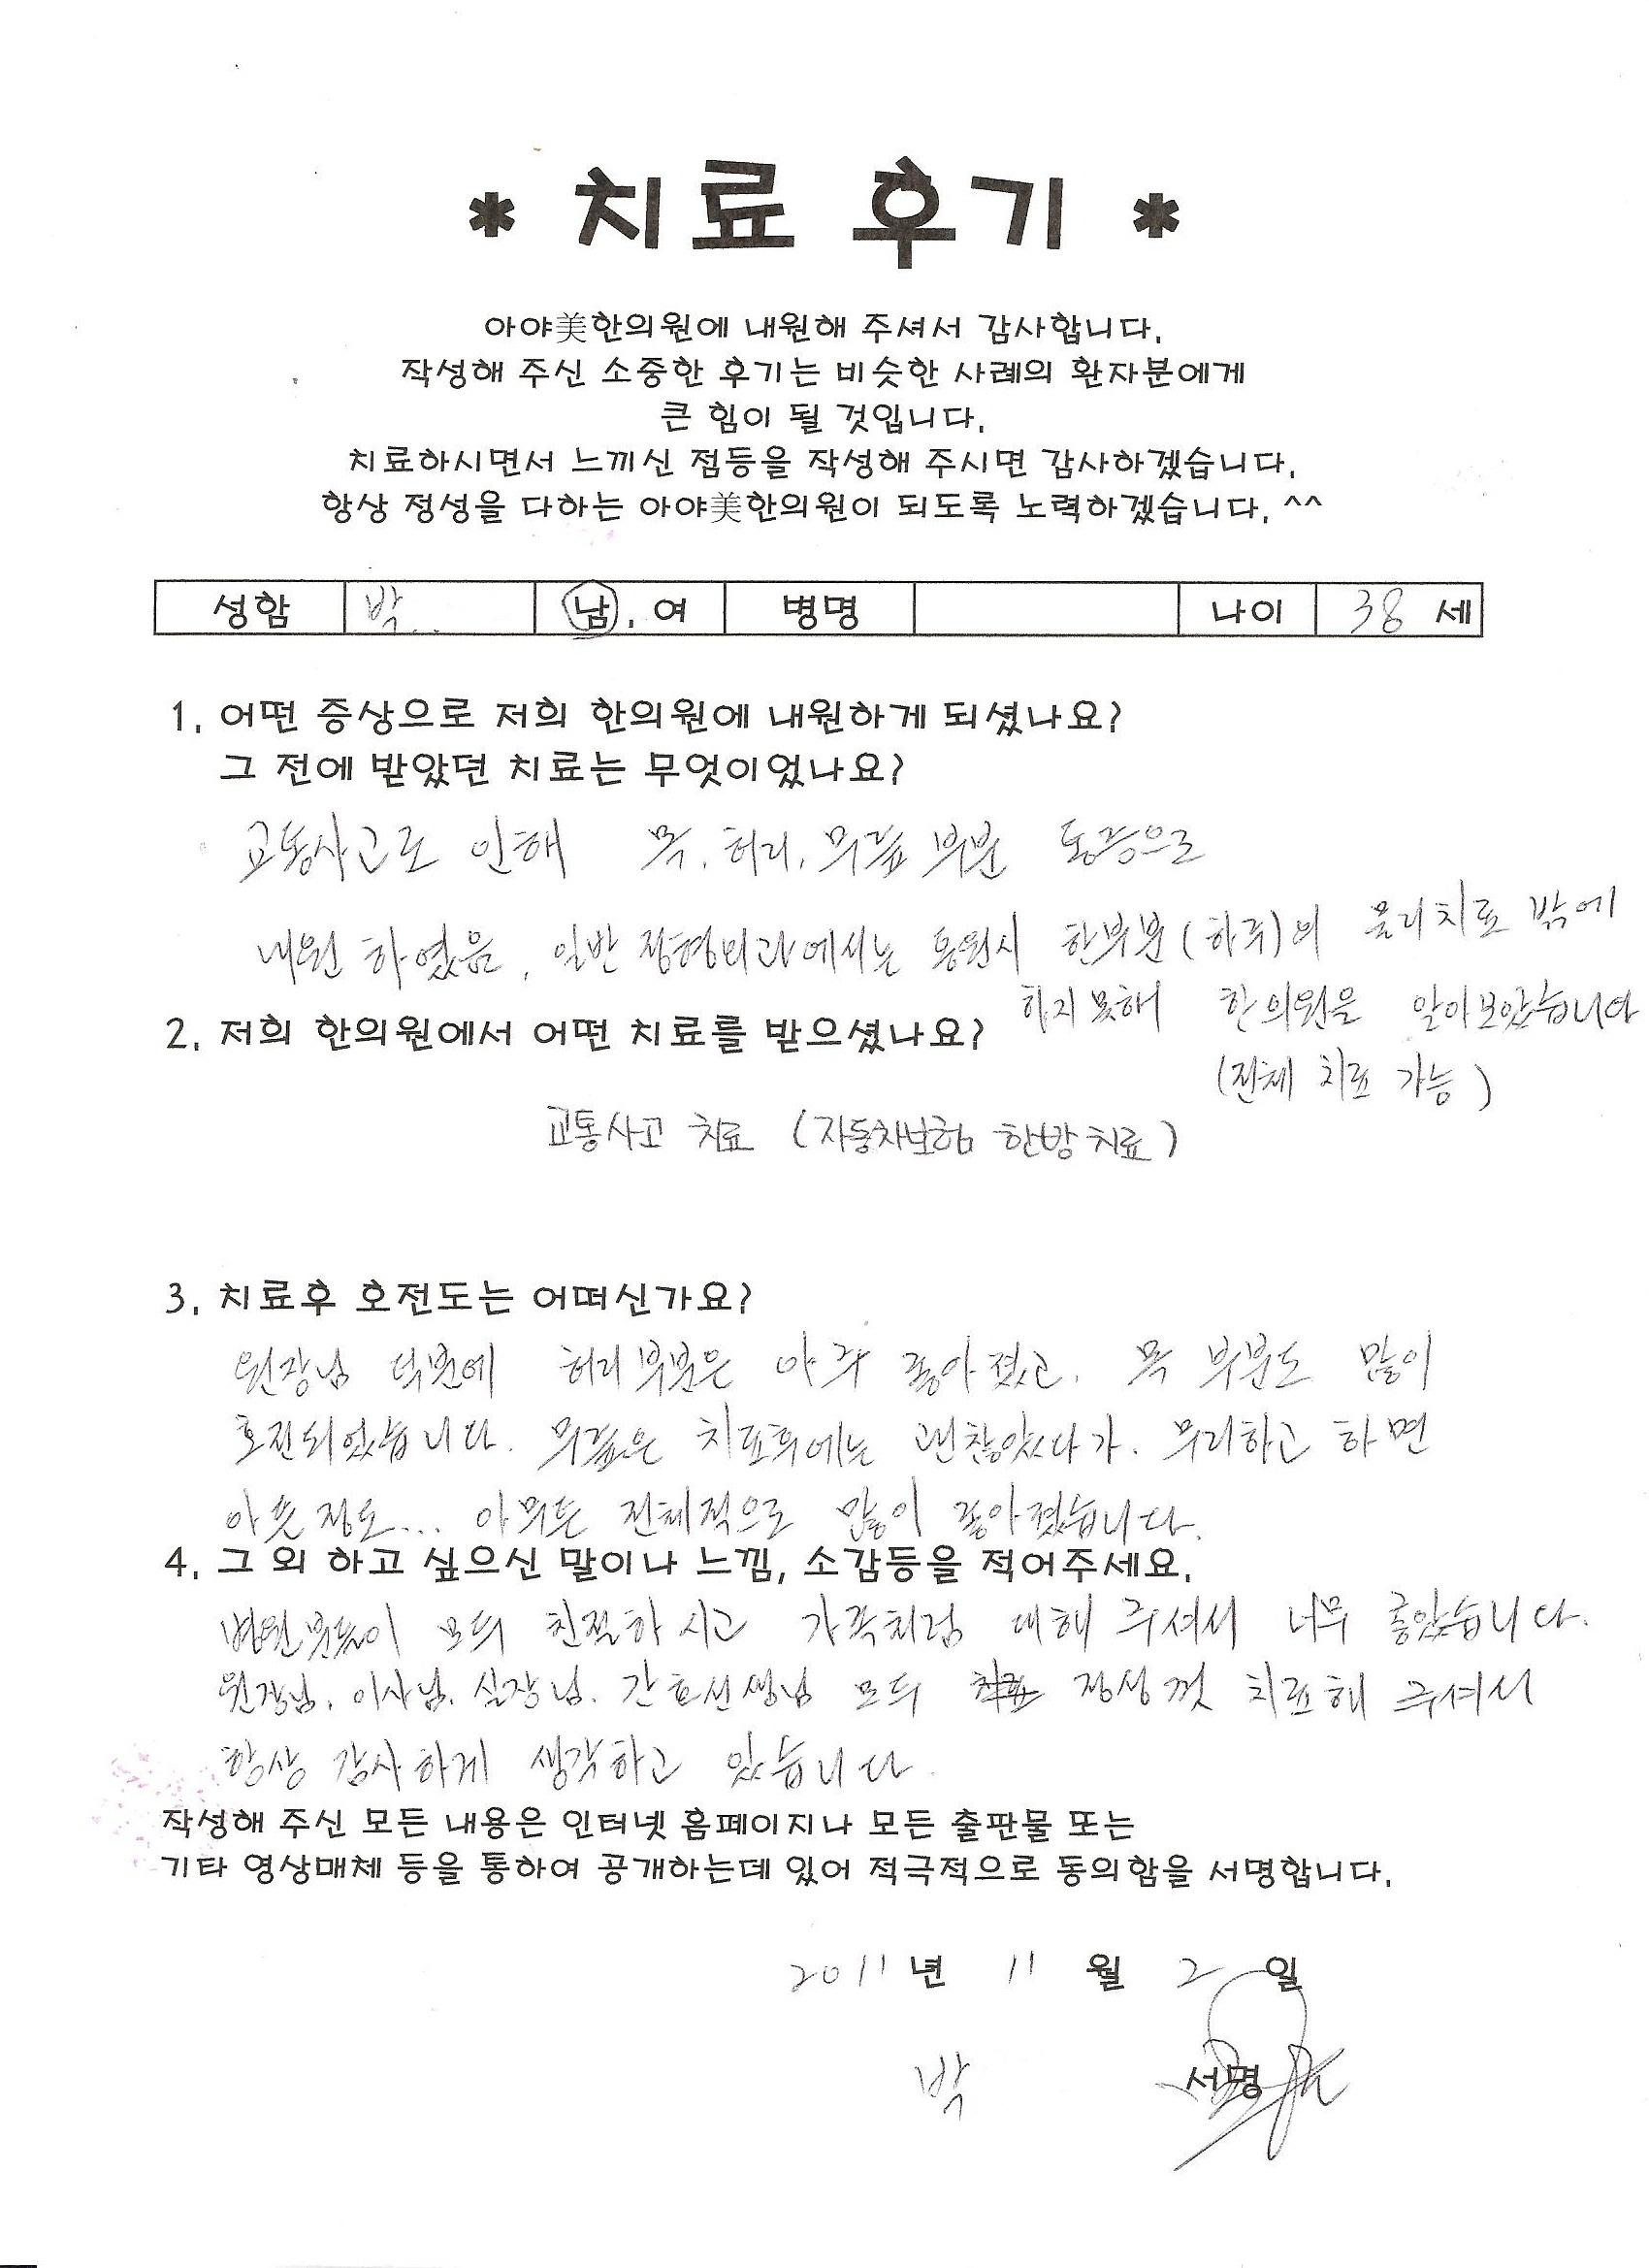 * 치료 후기 *
아야美한의원에 내원해 주셔서 감사합니다.
작성해 주신 소중한 후기는 비슷한 사례의 환자분에게
큰 힘이 될 것입니다.
치료하시면서 느끼신 점등을 작성해 주시면 감사하겠습니다.
항상 정성을 다하는 아야美한의원이 되도록 노력하겠습니다. ^^
성함 박.. 남. 여 병명 나이 38 세
1. 어떤 증상으로 저희 한의원에 내원하게 되셨나요?
그 전에 받았던 치료는 무엇이었나요?
교통사고로 인해 목, 허리, 무릎 부분 통증으로
내원 하였음, 일반 정형외과에서는 통원시 한부분(하루)의 물리치료 밖에
하지 못해 한의원을 알아보았습니다
(전체 치료 가능)
2. 저희 한의원에서 어떤 치료를 받으셨나요?
교통사고 치료 (자동차보험 한방치료)
3. 치료후 호전도는 어떠신가요?
원장님 덕분에 허리부분은 아주 좋아졌고, 목 부분도 많이
호전되었습니다. 무릎은 치료후에는 괜찮았다가, 무리하고 하면
아픈정도... 아무튼 전체적으로 많이 좋아졌습니다.
4. 그 외 하고 싶으신 말이나 느낌, 소감등을 적어주세요.
병원분들이 모두 친절하시고 가족처럼 대해 주셔서 너무 좋았습니다.
원장님, 이사님, 실장님, 간호선생님 모두 정성껏 치료해 주셔서
항상 감사하게 생각하고 있습니다.
작성해 주신 모든 내용은 인터넷 홈페이지나 모든 출판물 또는
기타 영상매체 등을 통하여 공개하는데 있어 적극적으로 동의함을 서명합니다.
2011 년 11 월 2 일
박 서명